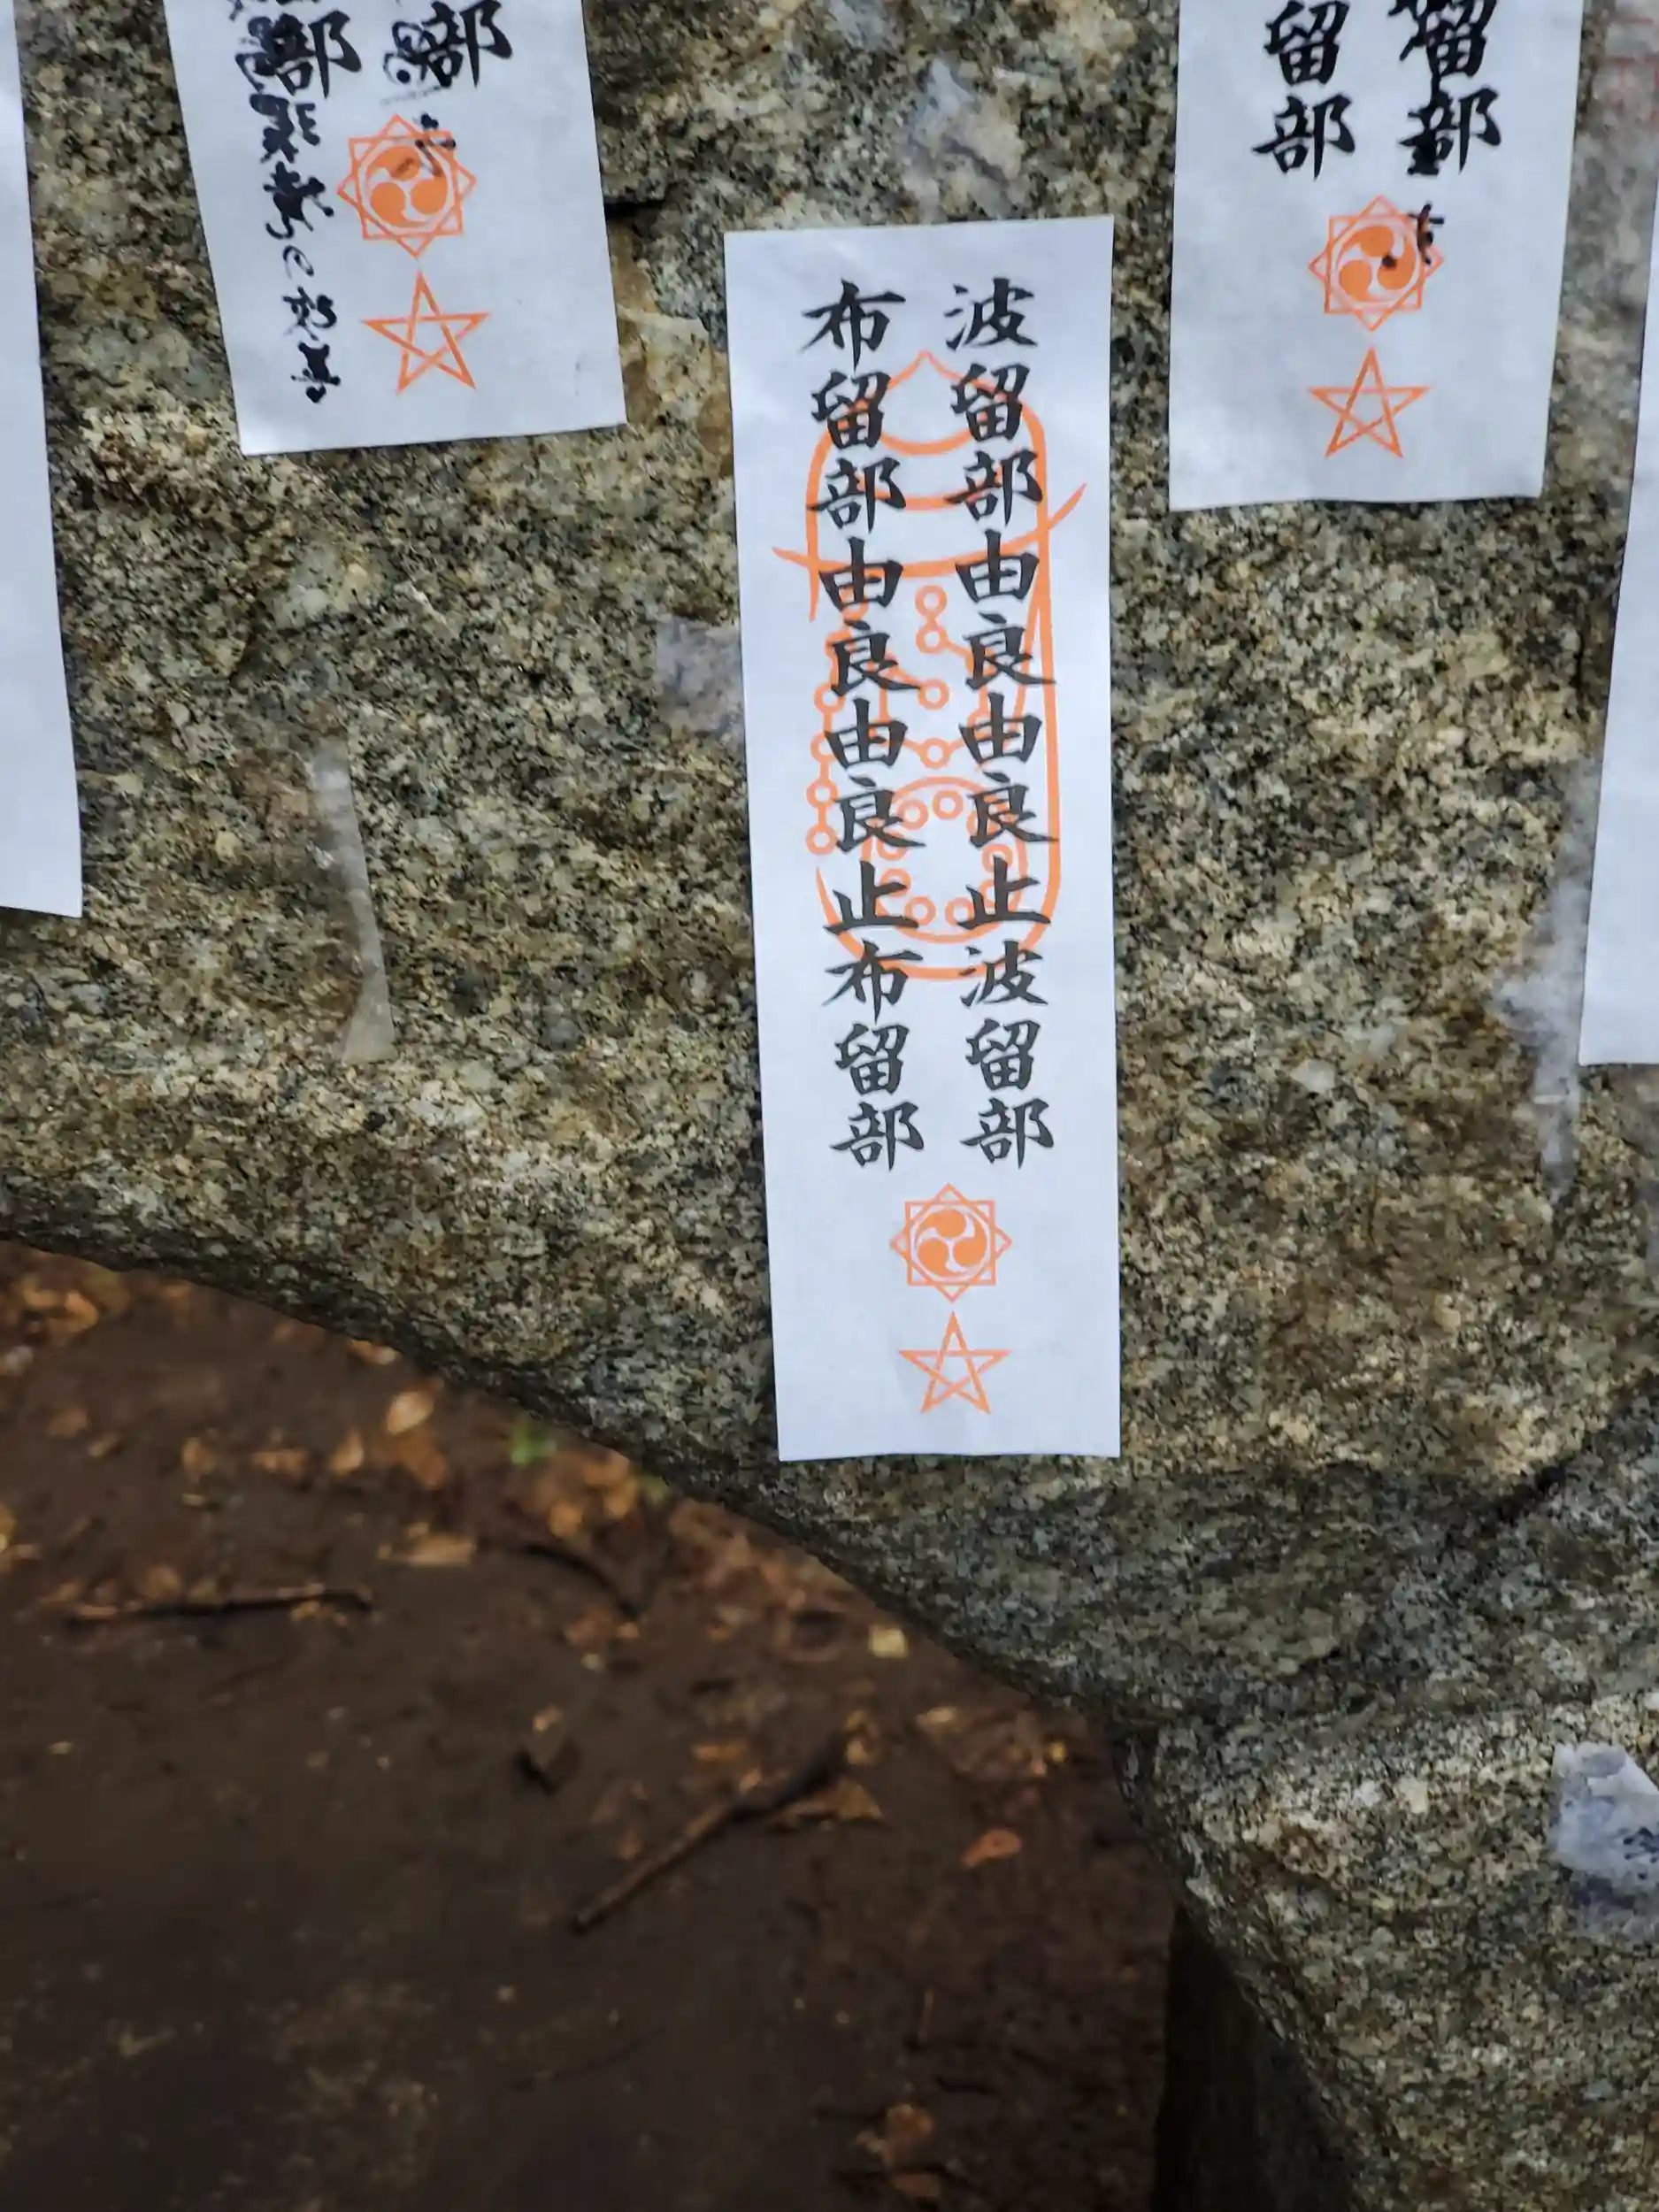 波留部由良由良止波留部
布留部由良由良止布留部
部
部
留部
留部